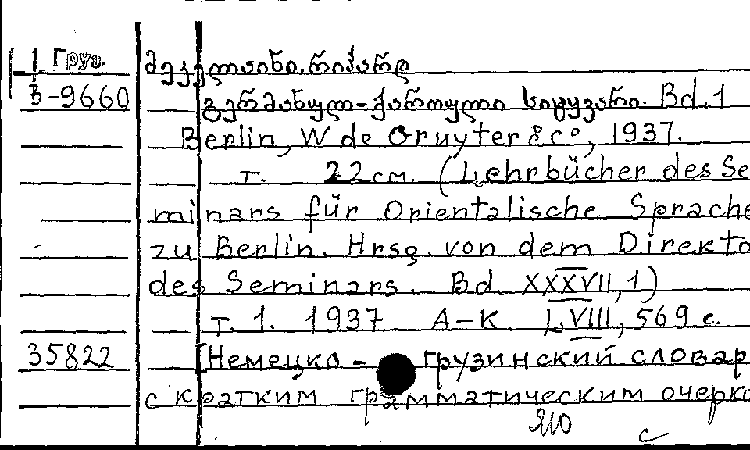 1 Груз.
მეკელაინი, რიჰარდ
3-9660
გერმანულ-ქართული სიტყვარი. Bd. 1
Berlin, W de Gruyter & Co, 1937.
т. 22 см. (Lehrbücher des Se
minars für Orientalische Sprache
zu Berlin. Hrsg. von dem Direkto
des Seminars. Bd XXXVII, 1)
т. 1. 1937 A-K. LVIII, 569 с.
35822
[Немецко - грузинский словар
с кратким грамматическим очерко